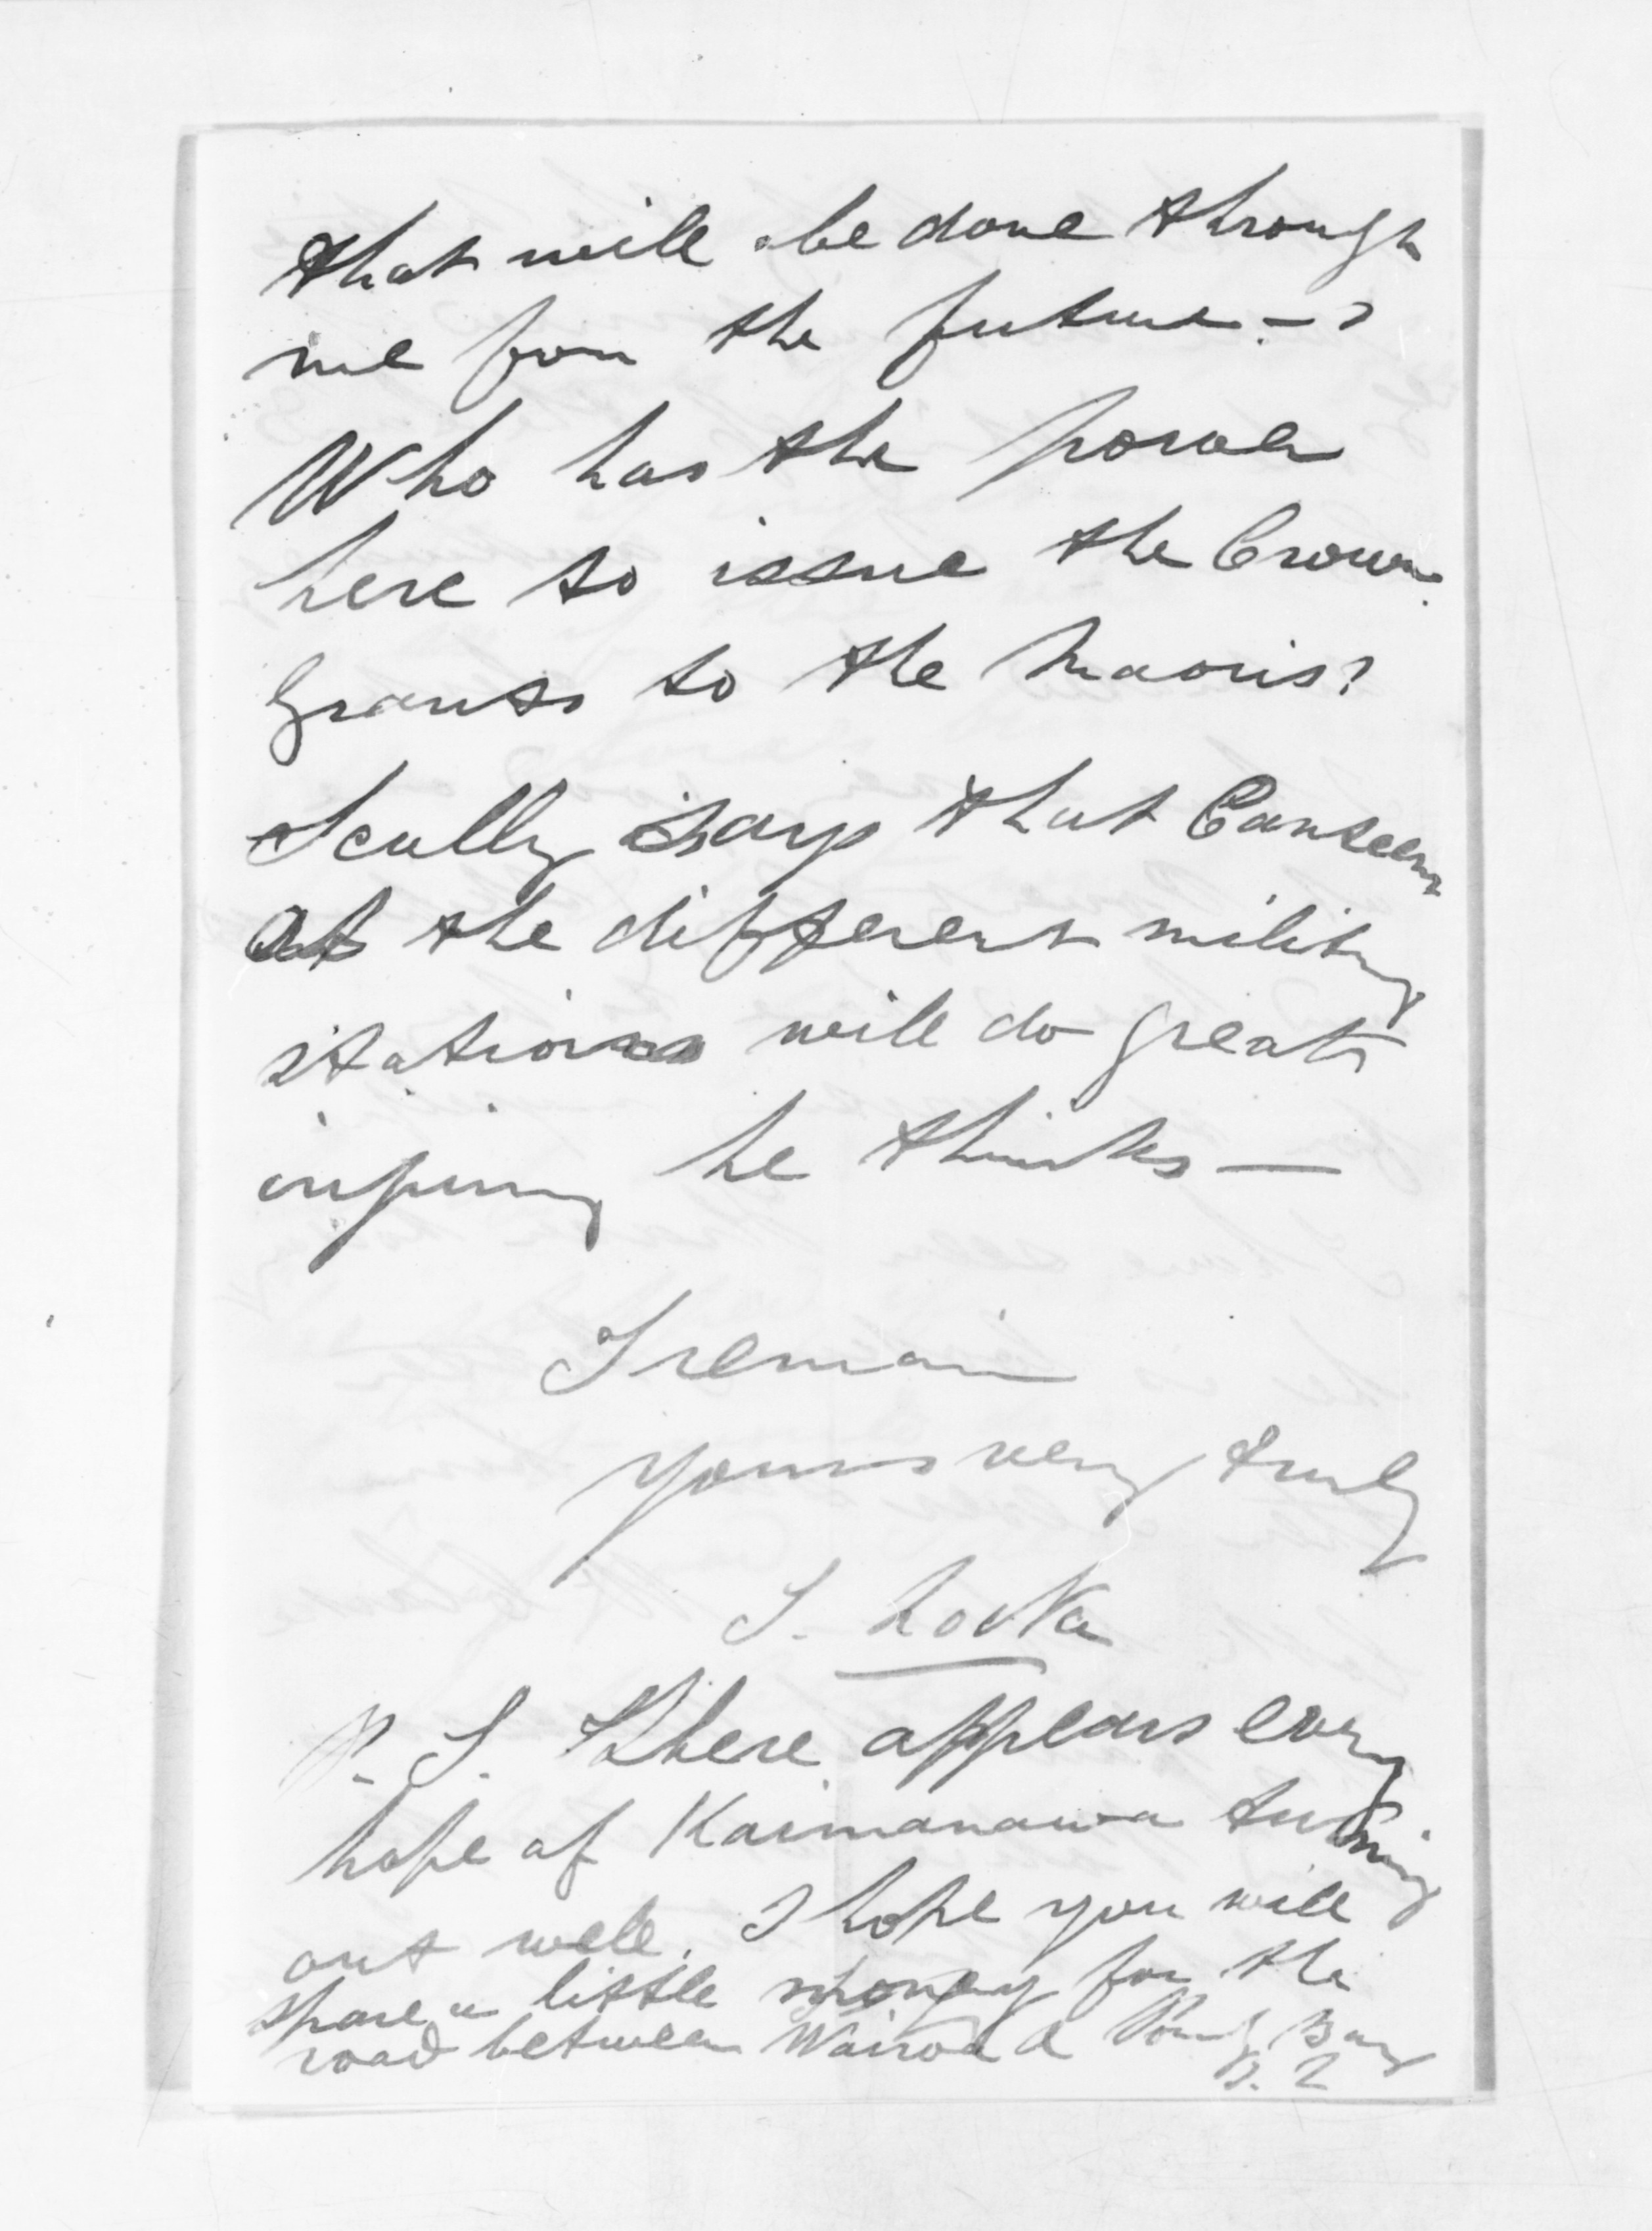 that will be done through
me for the future. - ?
Who has the power
here to issue the Crown
Grants to the Maoris?
Scully says that Canteens
at the different military
stations will do great
injury he thinks —
I remain
yours very truly
S. Locke
P. S. There appears every
hope of Kaimanawa turning
out well. I hope you will
spare a little money for the
road between Wairoa & Povty Bay